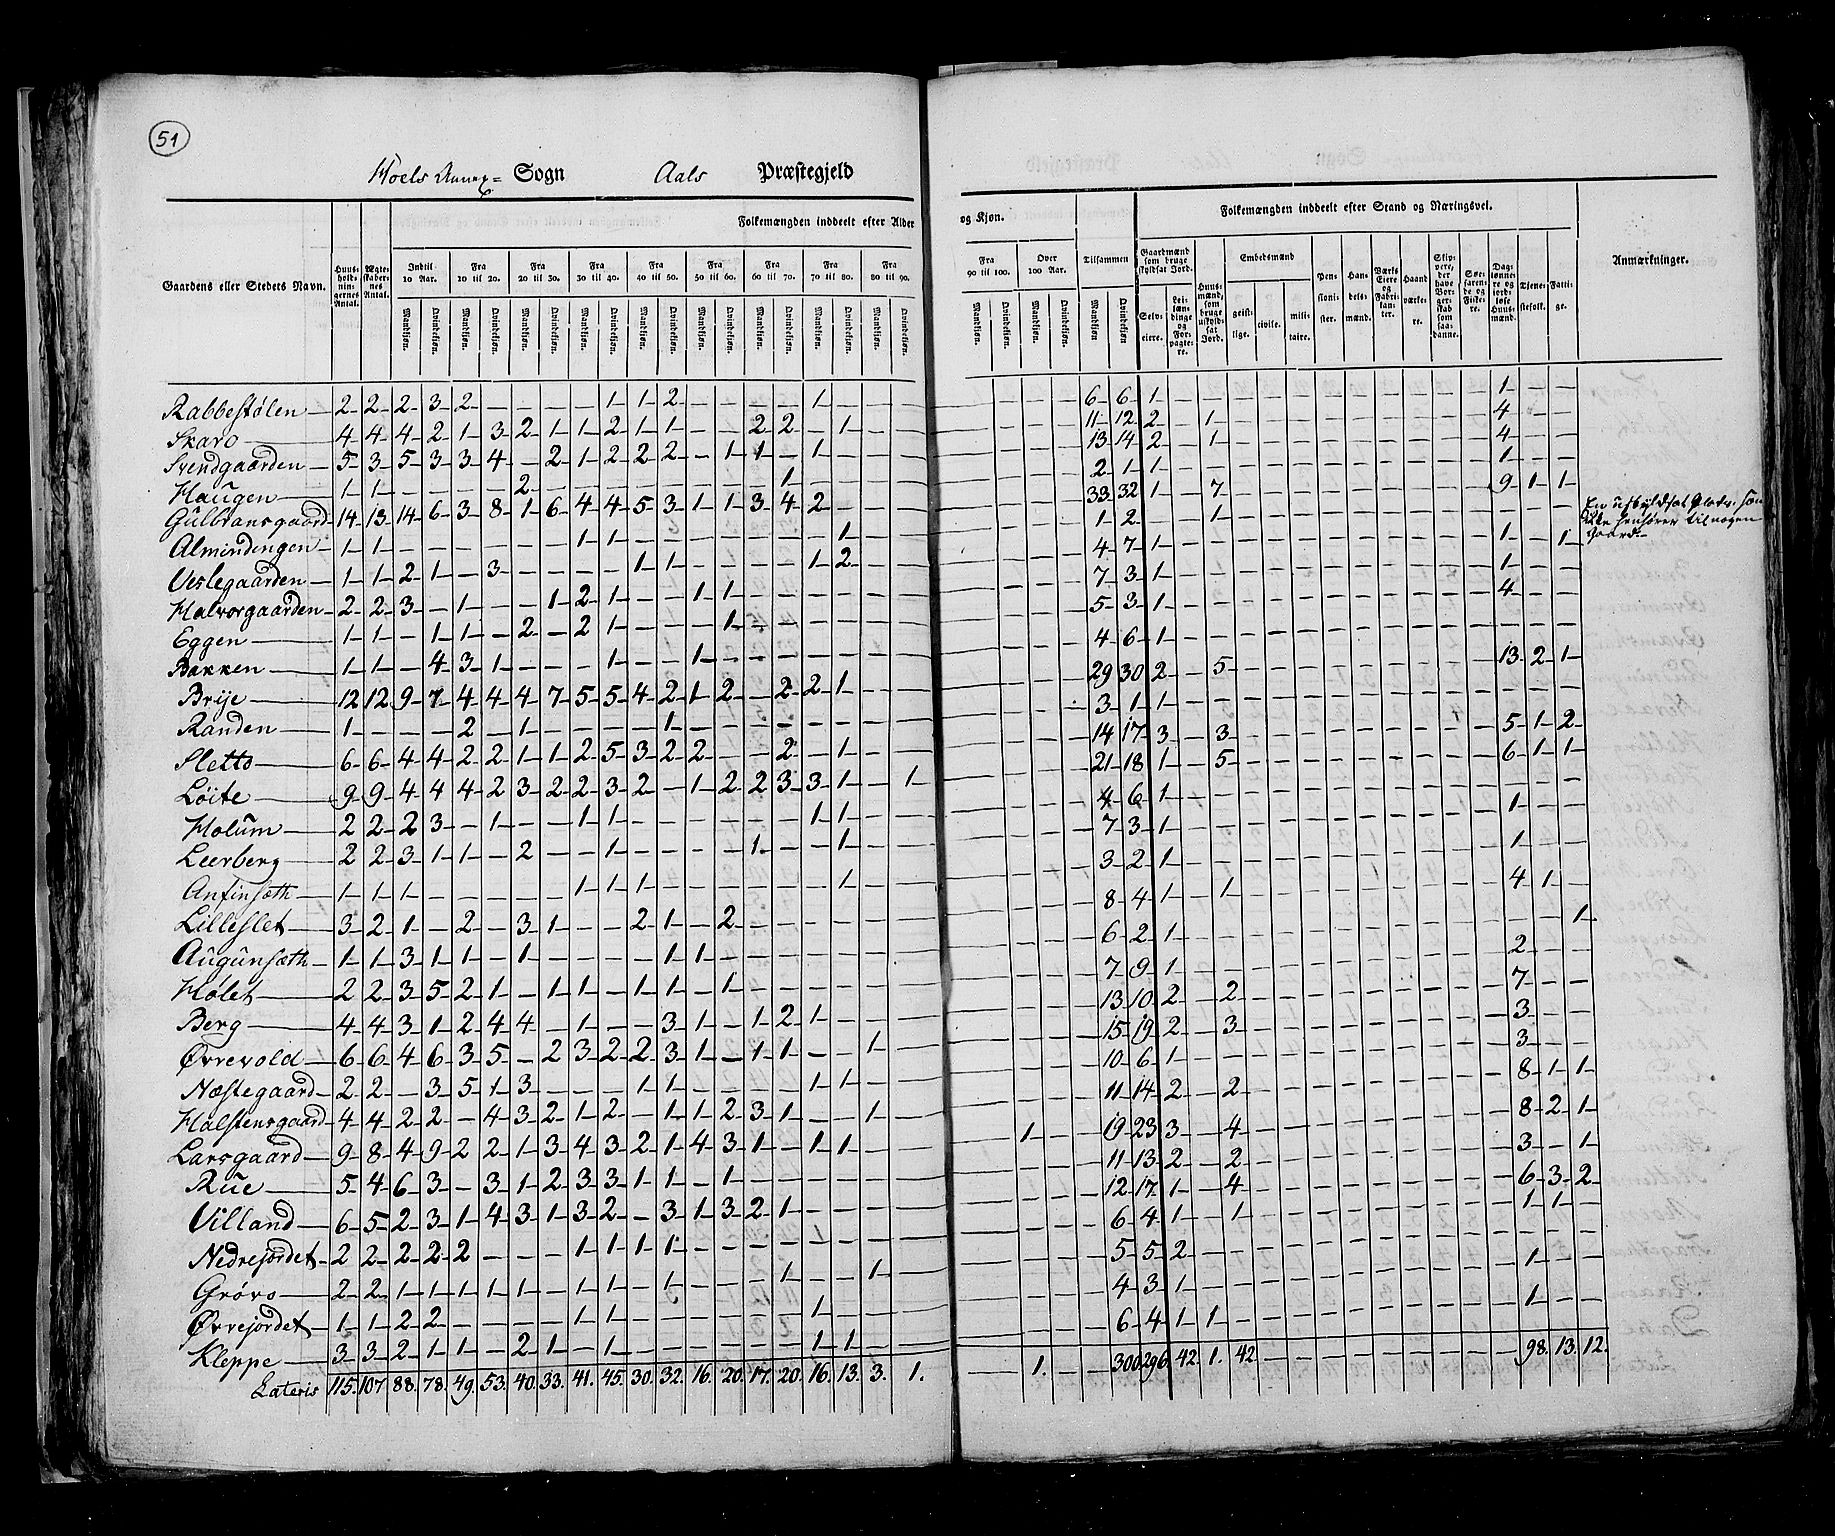 51
Hoels Annex= Sogn Aals Præstegjeld
Folkemængden inddeelt efter Alder og Kjøn.
Folkemængden inddeelt efter Stand og Næringsvei.
Gaardens eller Stedets Navn.
Huusholdningernes Antal.
Ægteskabernes Antal.
Indtil 10 Aar.
Fra 10 til 20.
Fra 20 til 30.
Fra 30 til 40.
Fra 40 til 50.
Fra 50 til 60.
Fra 60 til 70.
Fra 70 til 80.
Fra 80 til 90.
Fra 90 til 100.
Over 100 Aar.
Tilsammen
Mandkjøn. Qvindekjøn.
Gaardmænd som bruge skyldsat Jord.
Selveiere.
Leilændinge og Forpagtere.
Huusmænd, som bruge uskyldsat Jord.
Embedsmænd
geistlige.
civile.
militaire.
Pensionister.
Handelsmænd.
Værks Eiere og Fabrikanter.
Haandværkere.
Skippere, der have Borgerskab som saadanne.
Søefarende og Fiskere.
Daglønnere og jordløse Huusmænd.
Tjenestefolk.
Fattige.
Anmærkninger.
Rabbestølen — 2 2 2 3 2 — — — — 1 1 2 — — — — 1 — — — — — — — 6 6 1 — — — — — — — — — — — — 1 — —
Skaro — 4 4 4 2 1 3 2 1 1 2 1 1 — — 2 2 — 1 — — — — — — 11 12 2 — 1 — — — — — — — — — — 4 — —
Svendgaarden — 5 3 5 3 3 4 — 2 1 2 2 2 — 1 1 — 1 — — — — — — — 13 14 2 — 1 — — — — — — — — — — 4 — —
Haugen — 1 1 — — — — 2 — — — — — — — — 1 — — — — — — — — 2 1 1 — — — — — — — — — — — — 1 — —
Gulbransgaard 14 13 14 6 3 8 1 6 4 4 5 3 1 1 3 4 2 — — — — — — — 33 32 1 — 7 — — — — — — — — — — 9 1 1
Almindengen — 1 1 — — — — — — 1 1 — — — — — — — 1 — — — — — — 1 2 — — 1 — — — — — — — — — — — — — En uskyldsat Plads, som
ikke henhører til nogen
Gaard.
Veslegaarden — 1 1 2 1 — 3 — — — — 1 1 — — — — 1 2 — — — — — — 4 7 1 — — — — — — — — — — — — 1 — 1
Halvorgaarden — 2 2 3 — 1 — — 1 2 1 — — 1 1 — — — — — — — — — — 7 3 1 — — — — — — — — — — — — 1 — —
Eggen — 1 1 — 1 1 — 2 — 2 1 — — — 1 — — — — — — — — — — 5 3 1 — — — — — — — — — — — — 4 — —
Bakken — 1 1 — 4 3 1 — — — 1 — — 1 — — — — — — — — — — — 4 6 1 — — — — — — — — — — — — — — —
Brije — 12 12 9 7 4 4 4 7 5 5 4 2 1 2 — 2 2 1 — — — — — — 29 30 2 — 5 — — — — — — — — — — 13 2 1
Randen — 1 — — — 2 — 1 — — — — 1 — — — — — — — — — — — — 3 1 1 — — — — — — — — — — — — — — —
Sletto — 6 6 4 4 2 2 1 1 2 5 3 2 2 — — 2 — 1 — — — — — — 14 17 3 — 3 — — — — — — — — — — 5 1 2
Løite — 9 9 4 4 4 2 3 2 2 3 2 — 1 2 2 3 3 1 — 1 — — — — 21 18 1 — 5 — — — — — — — — — — 6 1 1
Holum — 2 2 2 3 — 1 — — 1 1 — — — — — — 1 1 — — — — — — 4 6 1 — — — — — — — — — — — — — — —
Leerberg 2 2 3 1 1 — 2 — — 1 — — — — 1 — — 1 — — — — — — 7 3 1 — — — — — — — — — — — — 1 — —
Anfinsæth — 1 1 1 — — — — — 1 1 1 — — — — — — 1 — — — — — — 3 2 1 — — — — — — — — — — — — 1 — —
Lilleslet — 3 2 1 — 2 — 3 1 — — 2 1 — 2 — — — — — — — — — — 8 4 1 — 1 — — — — — — — — — — 4 1 —
Augunsæth — 1 1 3 1 1 — 1 — — — — 1 1 — — — — — — — — — — — 6 2 1 — — — — — — — — — — — — — — 1
Hølet — 2 2 3 5 2 1 — 1 1 — 1 1 — 1 — — — — — — — — — — 7 9 1 — — — — — — — — — — — — 2 — —
Berg — 4 4 3 1 2 4 4 — 1 — — 3 1 — 1 2 1 — — — — — — — 13 10 2 — 2 — — — — — — — — — — 7 — —
Øvrevold — 6 6 4 6 3 5 — 2 3 2 2 3 1 — 1 1 — — 1 — — — — — 15 19 2 — 3 — — — — — — — — — — 3 — —
Næstegaard — 2 2 — 3 5 1 3 — — — 1 1 — — — — 1 1 — — — — — — 10 6 1 — — — — — — — — — — — — 3 — —
Halstensgaard — 4 4 2 2 — 4 3 2 1 2 — 1 1 2 3 1 — — 1 — — — — — 11 14 2 — 2 — — — — — — — — — — 8 1 1
Larsgaard — 9 8 4 9 2 2 1 3 4 3 2 1 4 3 1 — 1 1 — — — — 1 — 19 23 3 — 4 — — — — — — — — — — 8 2 1
Rue — 5 4 6 3 — 3 1 2 3 3 1 1 — 1 — — — — — — — — — — 11 13 2 — 2 — — — — — — — — — — 3 — 1
Villand — 6 5 2 3 1 4 3 1 3 2 — 3 1 3 2 1 — — — — — — — — 12 17 1 — 4 — — — — — — — — — — 6 3 2
Nedrejordet — 2 2 2 2 2 — — — 1 1 1 1 — — — — — — — — — — — — 6 4 1 — 1 — — — — — — — — — — 1 1 —
Grøvo — 2 2 1 1 1 1 1 — 1 1 — 1 — — — 1 — — 1 — — — — — 5 5 2 — — — — — — — — — — — — — — —
Øvrejordet — 1 1 2 2 — — — — 1 1 — — — — — — 1 — — — — — — — 4 3 1 — — — — — — — — — — — — 1 — —
Kleppe — 3 3 2 1 1 — 2 1 — 1 — — — — — — 1 1 — — — — — — 6 4 1 1 — — — — — — — — — — — 1 — —
Lateris 115. 107 88. 78. 49. 53. 40. 33. 41. 45. 30. 32. 16. 20. 17. 20. 16. 13. 3. 1. — — 1. — 300 296 42. 1. 42 — — — — — — — — — — 98. 13. 12.